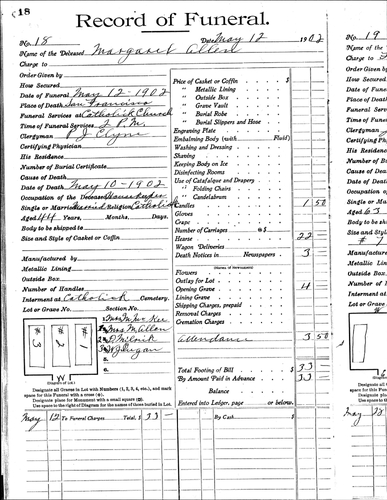 18
Record of Funeral.
No. 18 Date May 12 1902
Name of the Deceased Margaret Allen
Charge to
Order Given by
How Secured
Date of Funeral May 12-1902
Place of Death San Francisco
Funeral Services at Catholick Church
Time of Funeral Services 2 P.M.
Clergyman P J
Certifying Physician
His Residence
Number of Burial Certificate
Cause of Death
Date of Death May 10-1902
Occupation of the Deceased Housekeeper
Single or Married Religion Catholick
Aged 44 Years, Months, Days.
Body to be shipped to
Size and Style of Casket or Coffin
Manufactured by
Metallic Lining
Outside Box
Number of Handles
Interment at Catholick Cemetery.
Lot or Grave No. Section No.
# 3
# 2
# 1
W
Diagram of Lot
1. Mrs
2. Mrs M Allen
3.
4.
5.
6.
Designate all Graves in Lot with Numbers (1, 2, 3, 4, etc.), and mark
space for this Funeral with a cross
Designate place for Monument with a small square
Use space to the right of Diagram for the names of those buried in Lot.
Price of Casket or Coffin $
" Metallic Lining
" Outside Box
" Grave Vault
" Burial Robe
" Burial Slippers and Hose
Engraving Plate
Embalming Body (with Fluid)
Washing and Dressing
Shaving
Keeping Body on Ice
Disinfecting Rooms
Use of Catafalque and Drapery
" Folding Chairs
" Candelabrum
Candles 1 50
Gloves
Crape
Number of Carriages @ $
Hearse 22
Wagon Deliveries
Death Notices in Newspapers 3
Flowers
Outlay for Lot
Opening Grave 4
Lining Grave
Shipping Charges, prepaid
Removal Charges
Cremation Charges
Attendance 3 50
Total Footing of Bill $ 33
By Amount Paid in Advance 33
Balance
Entered into Ledger, page or below.
May 12 To Funeral Charges Total, $ 33
By Cash $
No. 19
Name of the
Charge to
Order Given
How Secured
Date of Funeral
Place of Death
Funeral Services
Time of Funeral
Clergyman
Certifying Ph
His Residence
Number of Bu
Cause of Death
Date of Death
Occupation of
Single or Marr
Aged 63
Body to be
Size and Style
# 7
Manufactured
Metallic Lining
Outside Box
Number of Ha
Interment at
Lot or Grave
Designate
space for
Designate
Use space
May 28